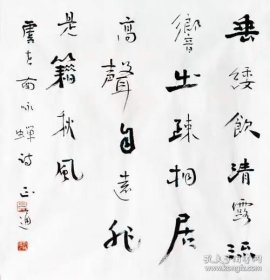 垂緌飲清露流
響出疎桐居
高聲自遠非
是籍秋風
虞世南咏蟬詩